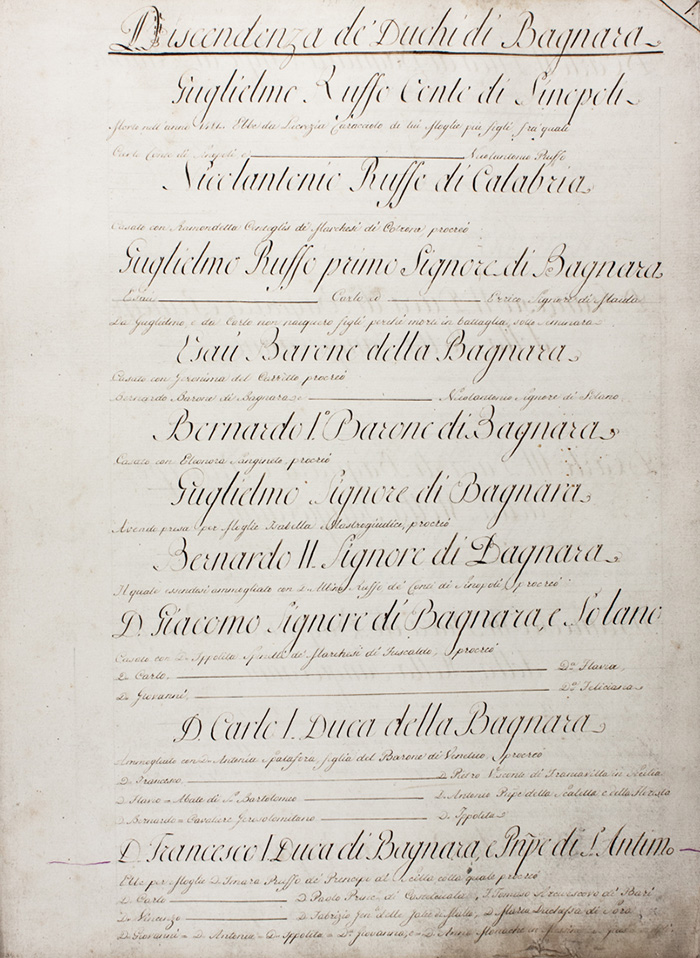 Discendenza de' Duchi di Bagnara
Guglielmo Ruffo Conte di Sinopoli
Morì nell'anno Ebbe da Lucrezia Caracciolo di lui Moglie più figli frà quali
Carlo Conte di Sinopoli e Nicolantonio Ruffo
Nicolantonio Ruffo di Calabria
Casato con Ramondetta Centiglis de' Marchesi di Cotrone procreò
Guglielmo Ruffo primo Signore di Bagnara
Esaù Carlo ed Errico Signore di
Da Guglielmo, e da Carlo non nacquero figli perchè morti in battaglia, solo
Esaù Barone della Bagnara
Casato con Jeronima del Carretto procreò
Bernardo Barone di Bagnara e Nicolantonio Signore di Solano
Bernardo I.º Barone di Bagnara
Casato con Eleonora Sangineto, procreò
Guglielmo Signore di Bagnara
Avendo presa per Moglie Isabella Mastrogiudici, procreò
Bernardo II. Signore di Bagnara
Il quale essendosi ammogliato con D. Ruffo de' Conti di Sinopoli procreò
D. Giacomo Signore di Bagnara, e Solano
Casato con D. Ippolita Spinelli de' Marchesi di Fuscaldo, procreò
D. Carlo, Dª Flavia,
D. Giovanni, Dª Feliciana
D. Carlo I. Duca della Bagnara
Ammogliato con D. Antonia Spatafora, figlia del Barone di Venetico, procreò
D. Francesco D. Pietro Visconte di Francavilla in Sicilia
D. Flavio Abate di S. Bartolomeo D. Antonio Pnpe della Scaletta e della Floresta
D. Bernardo Cavaliere Gerosolomitano D. Ippolita
D. Francesco I. Duca di Bagnara, e Pnpe di S. Antimo
Ebbe per Moglie D. Imara Ruffo de' Principe di Scilla colla quale procreò
D. Carlo D. Paolo Princ. di Castelcicala F. Tomaso Arcivescovo di Bari
D. Vincenzo D. Fabrizio Gen. delle Galee di Malta, D. Maria Duchessa di Sora
D. Giovanni D. Antonia D. Ippolita Dª Giovanna, e D. Anna Monache in